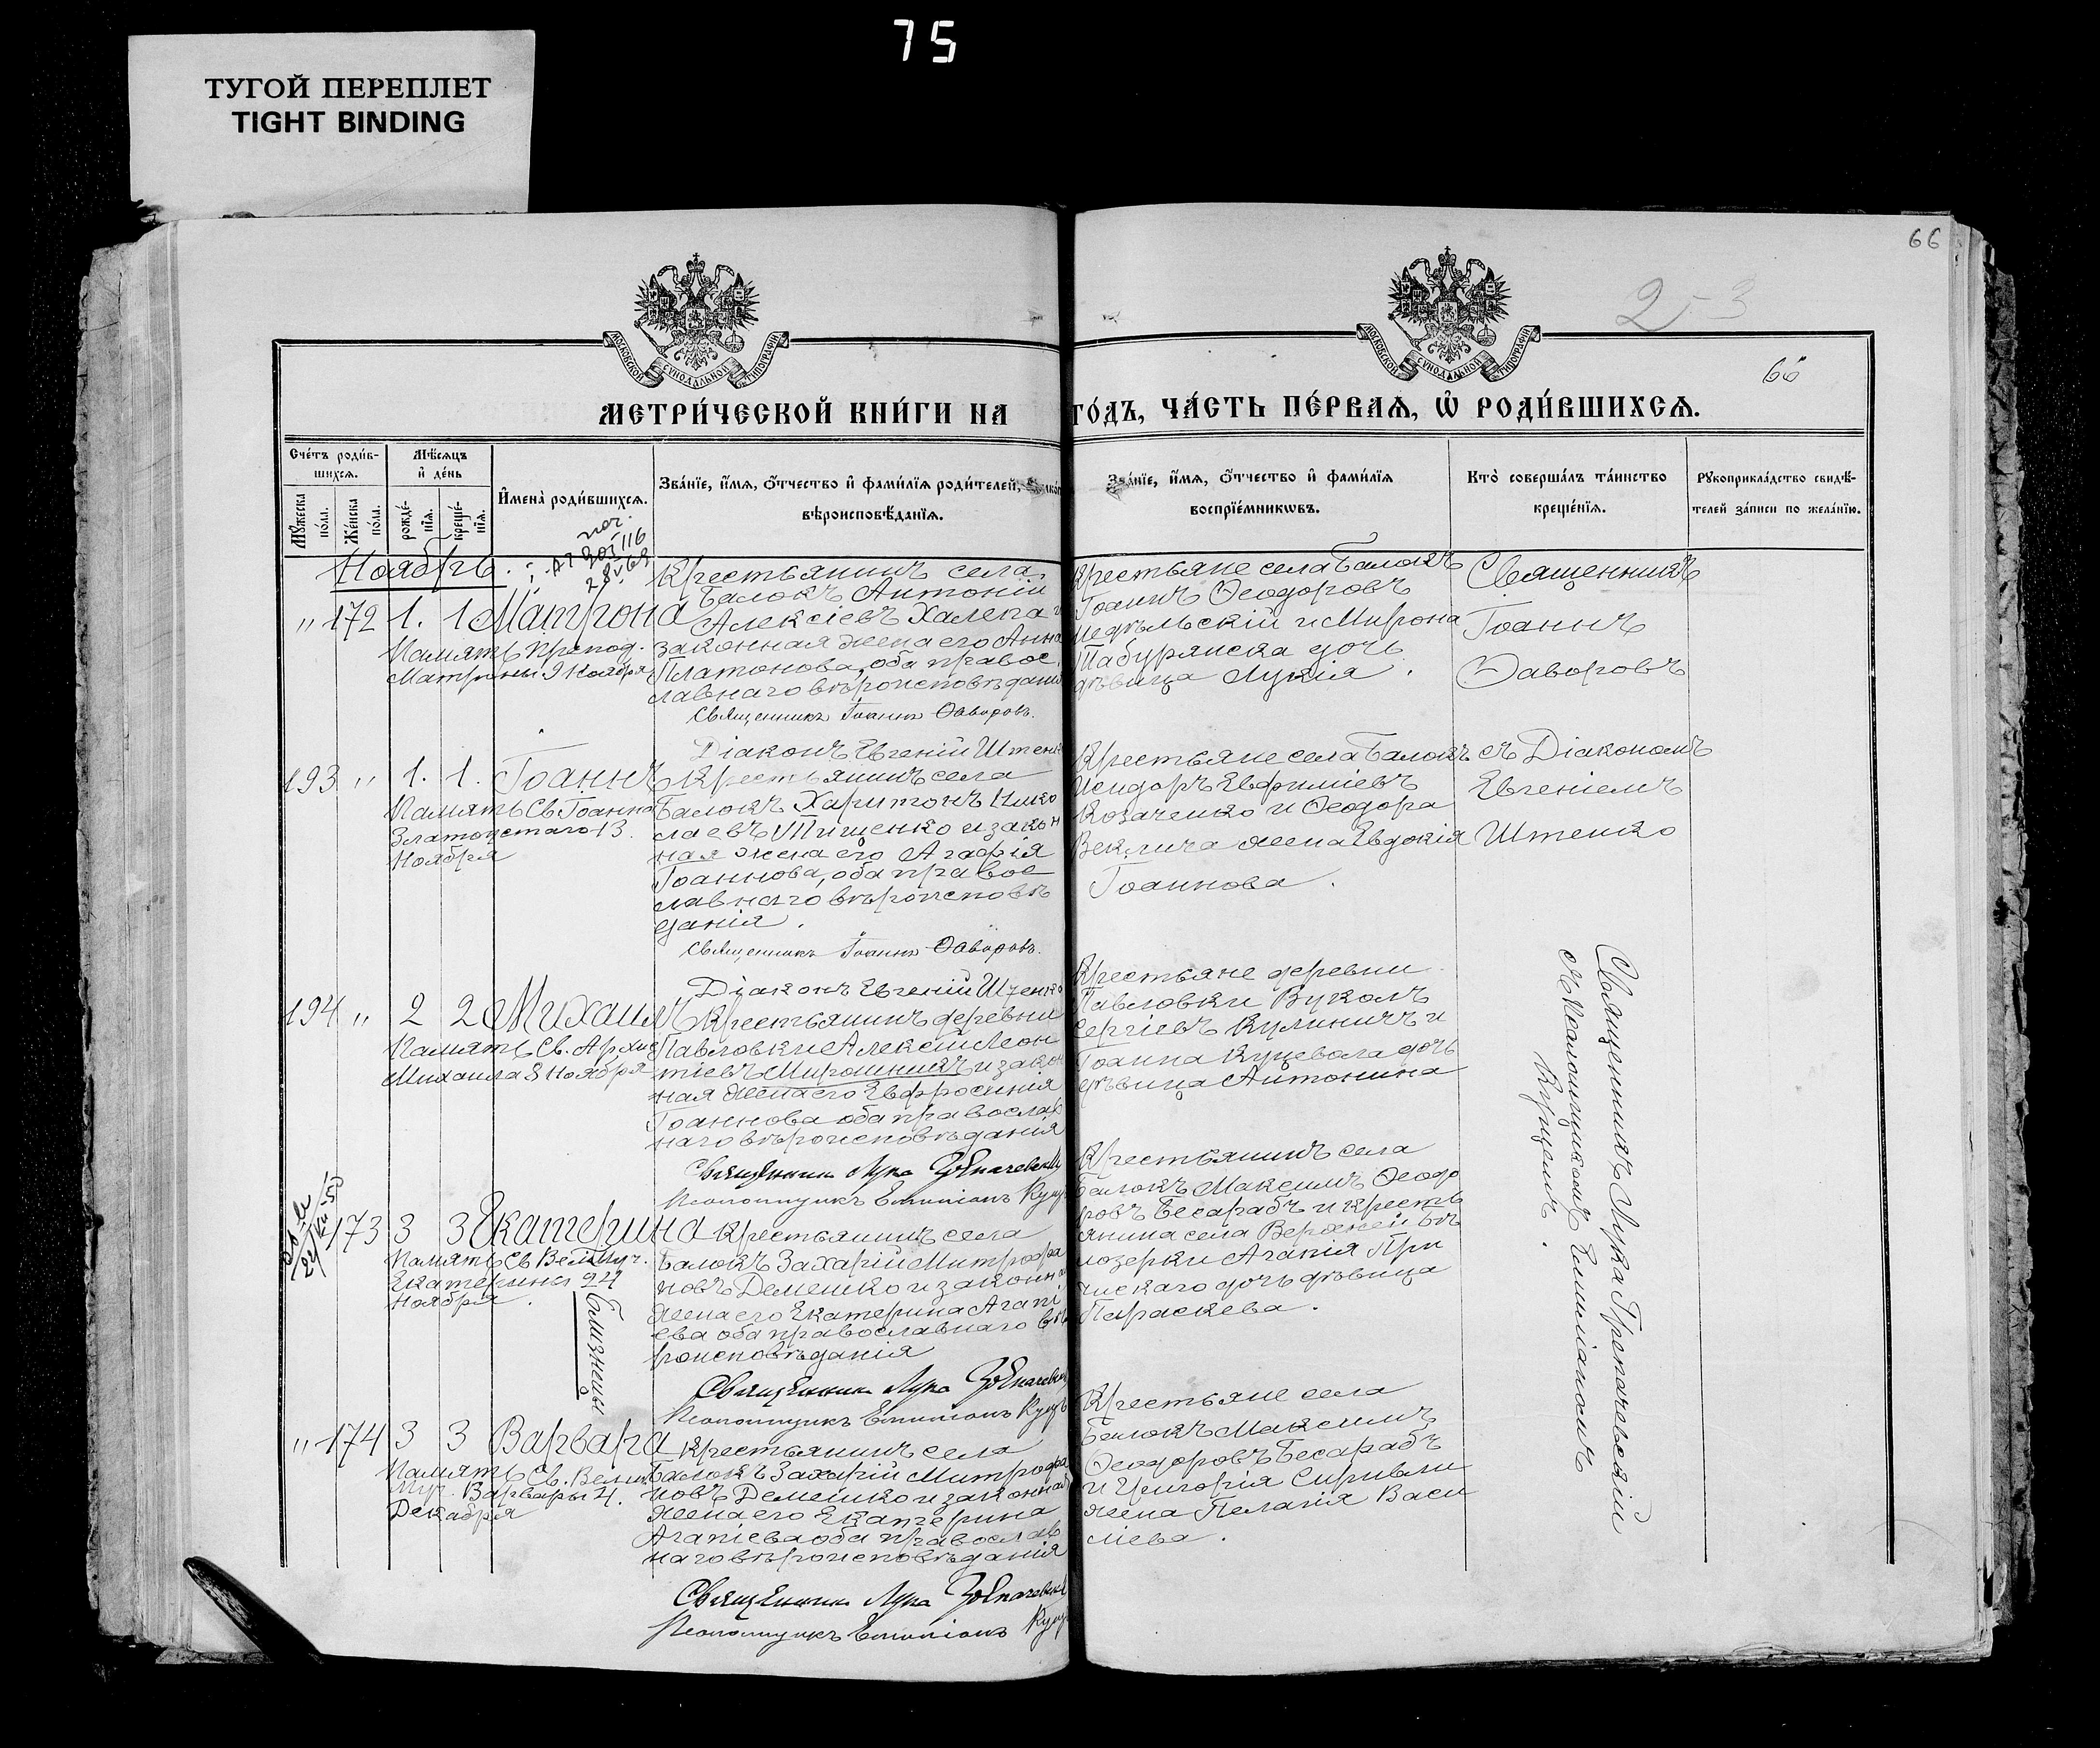 75
ТУГОЙ ПЕРЕПЛЕТ
TIGHT BINDING
66
2-3
66
МОСКОВСКОЙ СѴНОДАЛЬНОЙ ТИПОГРАФІИ
МОСКОВСКОЙ СѴНОДАЛЬНОЙ ТИПОГРАФІИ
МЕТРИ́ЧЕСКОЙ КНИ́ГИ НА ГО́ДЪ, ЧА́СТЬ ПЕ́РВАѦ, Ѡ҆ РОДИ́ВШИХСѦ.
Сче́тъ роди́в-
шихсѧ.
Мѣ́сѧцъ
и҆ де́нь
Мꙋ́жеска
по́ла.
Же́нска
по́ла.
рожде́-
нїѧ.
креще́-
нїѧ.
И҆мена̀ роди́вшихсѧ.
Зва́нїе, и҆́мѧ, ѻ҆́тчество и҆ фами́лїѧ роди́телей,
вѣроисповѣ́данїѧ.
Зва́нїе, и҆́мѧ, ѻ҆́тчество и҆ фами́лїѧ
воспрїе́мникѡвъ.
Кто̀ соверша́лъ та́инство
креще́нїѧ.
Рꙋкоприкла́дство свидѣ́-
телей за́писи по жела́нїю.
Ноябрь.
„ 172 1. 1 Матрона
Память препод.
Матроны 9 Ноября
Крестьянинъ села
Балокъ Антоній
Алексіевъ Халепа и
законная жена его Анна
Платонова, оба правос
лавнаго вѣроисповѣдані
Священникъ Іоаннъ Ѳаворовъ.
Діаконъ Евгеній Штен
Крестьяне села Балокъ
Іоаннъ Ѳеодоровъ
Недѣльскій и Мирона
Табурянска дочь
дѣвица Лукія.
Священникъ
Іоаннъ
Ѳаворовъ
193 „ 1. 1. Іоаннъ
Память Св. Іоанна
Златоустаго 13
Ноября
Крестьянинъ села
Балокъ Харитонъ Нико
лаевъ Тищенко и закон
ная жена его Агафія
Іоаннова, оба правос
лавнаго вѣроисповѣ
данія.
Священникъ Іоаннъ Ѳаворовъ.
Діаконъ Евгеній Штенко
Крестьяне села Балокъ
Исидоръ Евфиміевъ
Козаченко и Ѳеодора
Векличa жена Евдокія
Іоаннова.
съ Діакономъ
Евгеніемъ
Штенко
194 „ 2 2 Михаилъ
Память Св. Архис
Михаила 8 Ноября
Крестьянинъ деревни
Павловки Алексій Леон
тіевъ Мирошникъ и закон
ная жена его Евфросинія
Іоаннова оба православ
наго вѣроисповѣданія
Священникъ Лука
Псаломщикъ Емиліанъ Куц
Крестьяне деревни
Павловки Вуколъ
Сергіевъ Кулиничъ и
Іоанна Куцевола дочь
дѣвица Антонина
Священникъ Лука Гречачевскій
съ Псаломщикомъ Емиліаномъ
Куцемъ.
173 3 3 Екатерина
Память Св. Велмуч.
Екатерины 24
Ноября.
Близнецы
Крестьянинъ села
Балокъ Захарій Митрофа
новъ Демешко и законн
жена его Екатерина Агапі
ева оба православнаго вѣ
роисповѣданія
Священникъ Лука
Псаломщикъ Емиліанъ Куцъ
Крестьянинъ села
Балокъ Максимъ Ѳеодо
ровъ Бесарабъ и кресть
янина села Верхней Бѣ
лозерки Агапія При
дочь дѣвица
Параскева.
„ 174 3 3 Варвара
Память Св. Велик
муч. Варвары 4.
Декабря
Крестьянинъ села
Балокъ Захарій Митрофа
новъ Демешко и законная
жена его Екатерина
Агапіева оба православ
наго вѣроисповѣданія
Священникъ Лука
Псаломщикъ Емиліанъ Куц
Крестьяне села
Балокъ Максимъ
Ѳеодоровъ Бесарабъ
и Григорія
жена Пелагія Васи
ліева.